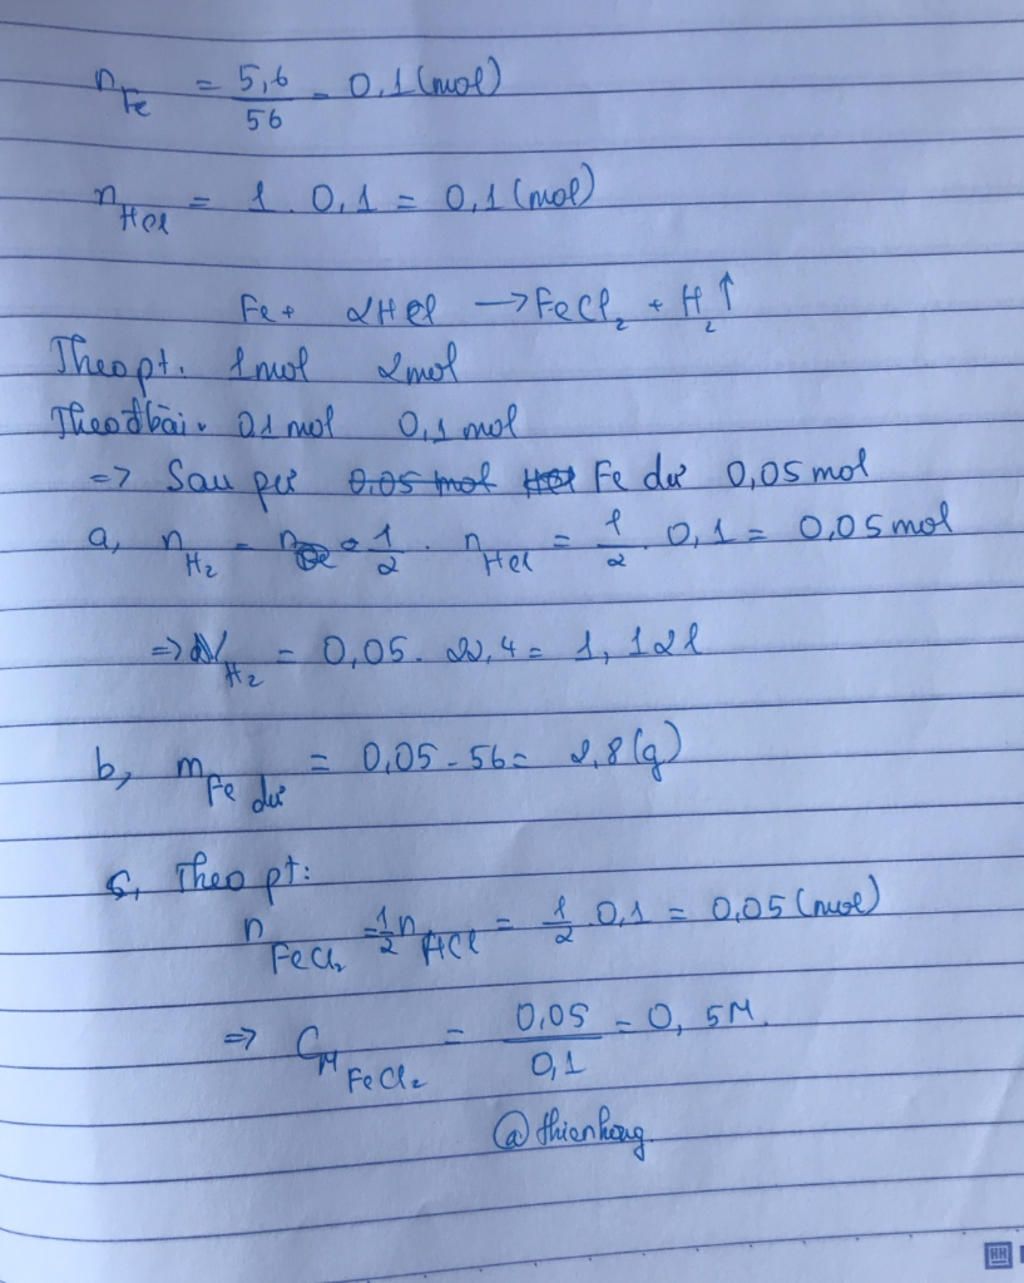 n_Fe = 5,6/56 = 0,1 (mol)
n_HCl = 1 . 0,1 = 0,1 (mol)
Fe + 2HCl → FeCl₂ + H₂↑
Theo pt. 1mol 2mol
Theo đbài. 0,1 mol 0,1 mol
=> Sau pư Fe dư 0,05 mol
a, n_H₂ = 1/2 . n_HCl = 1/2 . 0,1 = 0,05 mol
=> V_H₂ = 0,05 . 22,4 = 1,12 l
b, m_Fe dư = 0,05 . 56 = 2,8 (g)
c, Theo pt:
n_FeCl₂ = 1/2 n_HCl = 1/2 . 0,1 = 0,05 (mol)
=> C_M FeCl₂ = 0,05/0,1 = 0,5M.
@thienhong.
HH